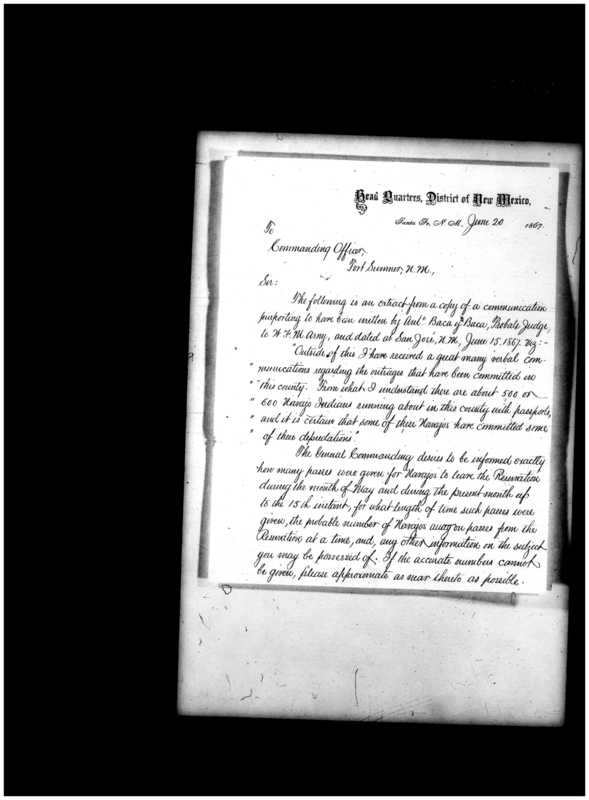 Head Quarters, District of New Mexico,
Santa Fe, N. M. June 20 1867.
To
Commanding Officer,
Fort Sumner, N.M.,
Sir:
The following is an extract from a copy of a communication
purporting to have been written by Anto. Baca y Baca, Probate Judge,
to W. F. M. Arny, and dated at San José, N.M., June 15. 1867. Viz:-
"Outside of this I have received a great many verbal com-
" munications regarding the outrages that have been committed in
" this county. From what I understand there are about 500 or
" 600 Navajo Indians running about in this county with passports,
" and it is certain that some of these Navajos have committed some
" of these depredations"
The General Commanding desires to be informed exactly
how many passes were given for Navajos to leave the Reservation
during the month of May and during the present month up
to the 15th instant, for what length of time such passes were
given, the probable number of Navajos away on passes from the
Reservation at a time, and, any other information on the subject
you may be possessed of. If the accurate numbers cannot
be given, please approximate as near thereto as possible.